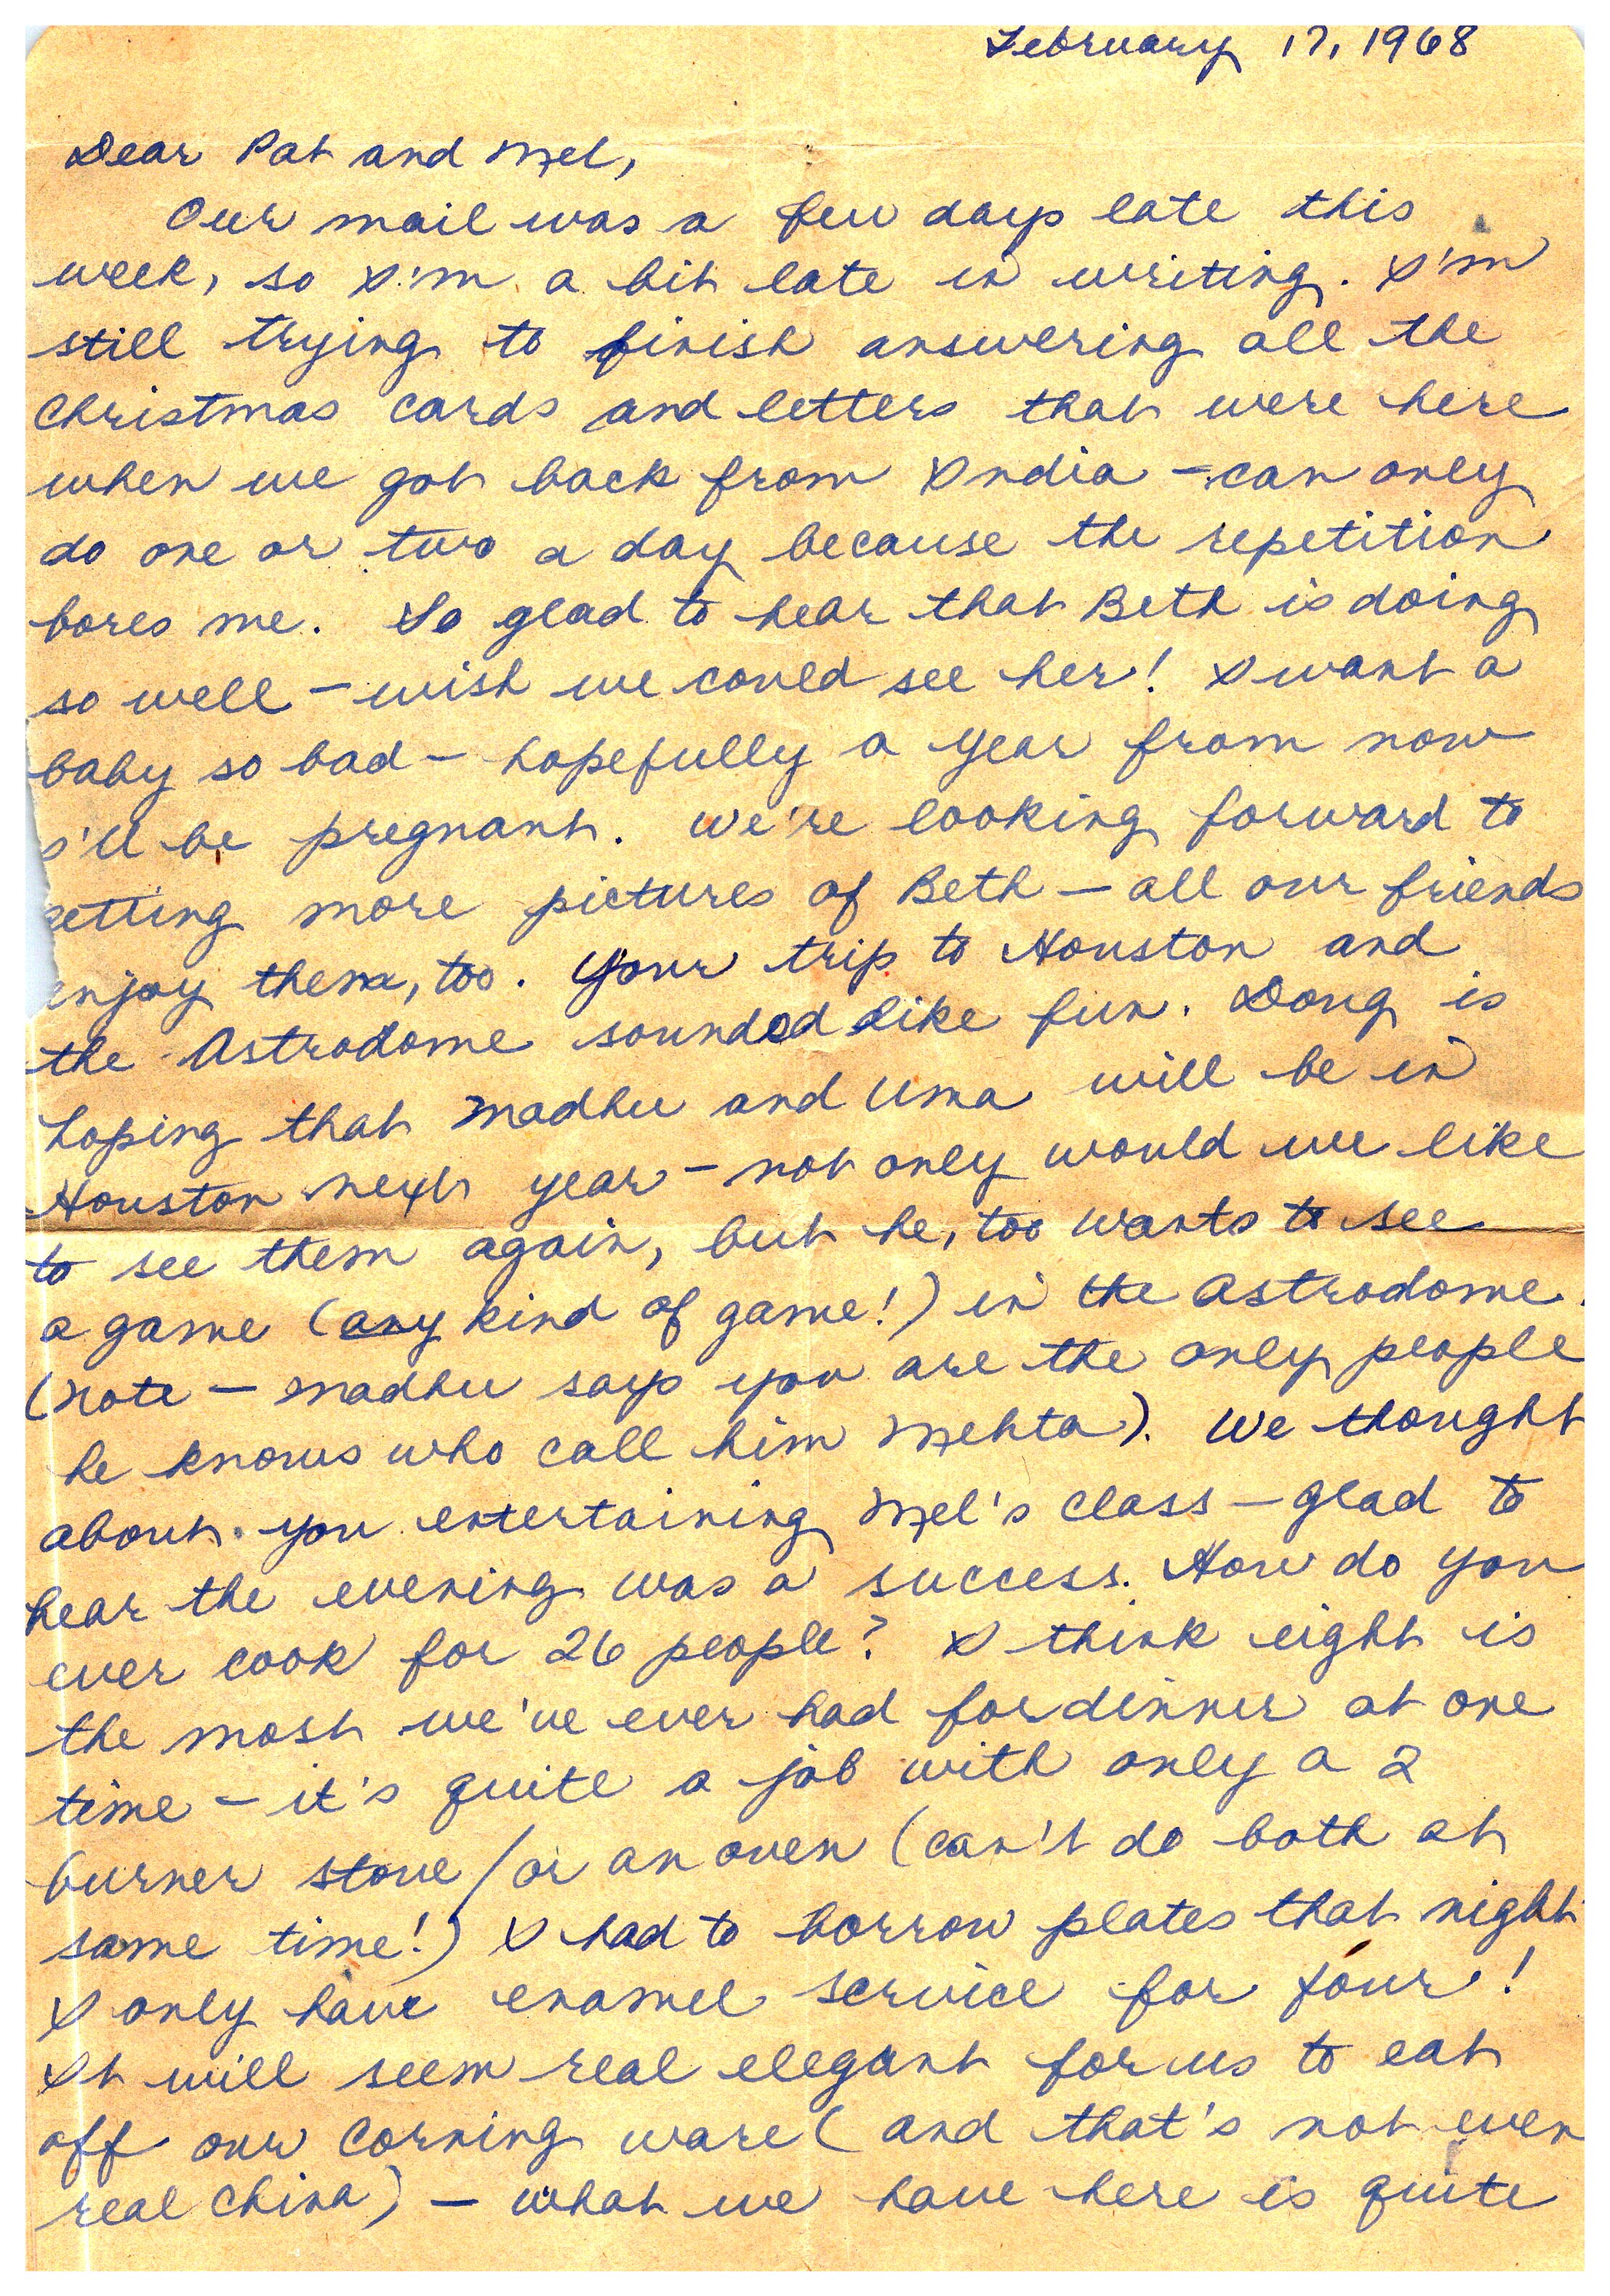 February 17, 1968
Dear Pat and Mel,
Our mail was a few days late this
week, so I'm a bit late in writing. I'm
still trying to finish answering all the
Christmas cards and letters that were here
when we got back from India - can only
do one or two a day because the repetition
bores me. So glad to hear that Beth is doing
so well - wish we could see her! I want a
baby so bad - hopefully a year from now
I'll be pregnant. We're looking forward to
getting more pictures of Beth - all our friends
enjoy them, too. Your trip to Houston and
the Astrodome sounded like fun. Doug is
hoping that Madhu and Uma will be in
Houston next year - not only would we like
to see them again, but he, too wants to see
a game (any kind of game!) in the Astrodome.
(Note - Madhu says you are the only people
he knows who call him Mehta). We thought
about you entertaining Mel's class - glad to
hear the evening was a success. How do you
ever cook for 26 people? I think eight is
the most we've ever had for dinner at one
time - it's quite a job with only a 2
burner stove / or an oven (can't do both at
same time!) I had to borrow plates that night
I only have enamel service for four!
It will seem real elegant for us to eat
off our Corning ware (and that's not even
real china) - what we have here is quite